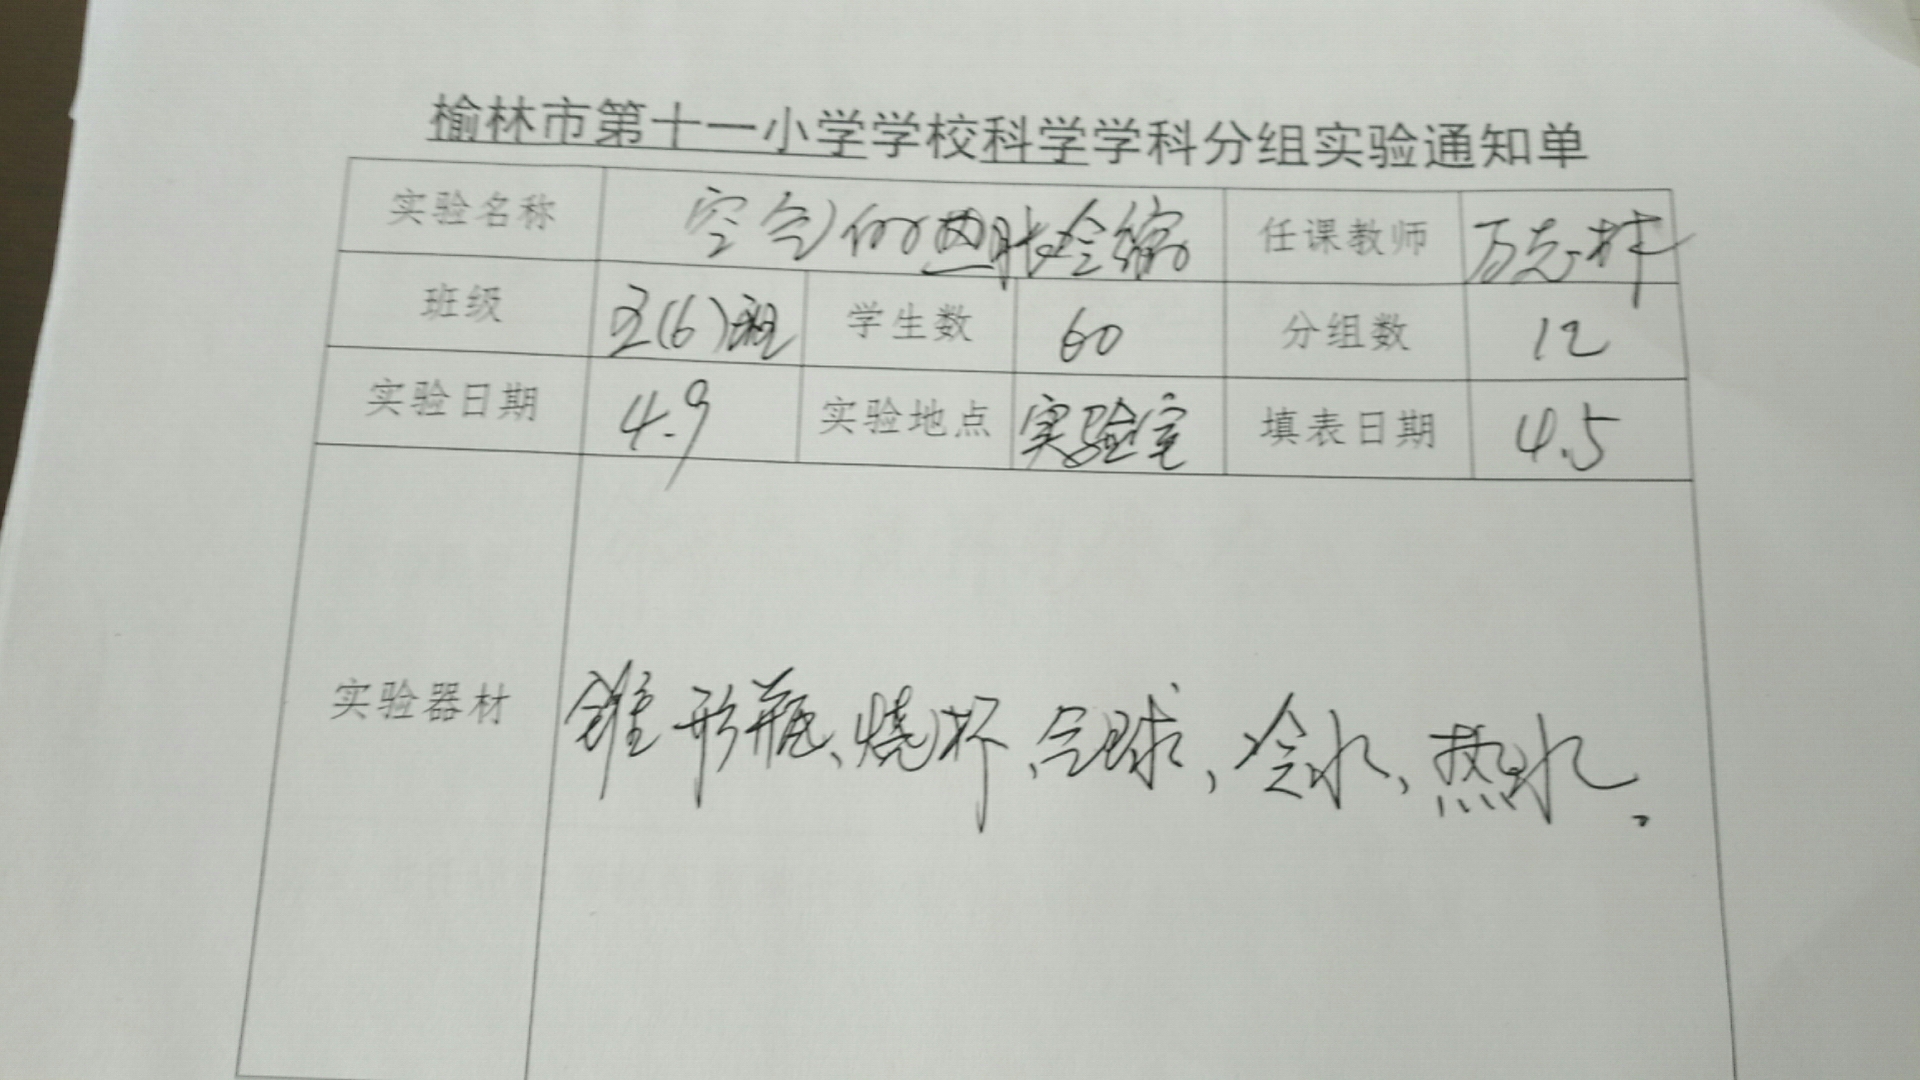 榆林市第十一小学学校科学学科分组实验通知单
实验名称 空气的热胀冷缩 任课教师 万志林
班级 五(6)班 学生数 60 分组数 12
实验日期 4.9 实验地点 实验室 填表日期 4.5
实验器材 锥形瓶、烧杯、气球、冷水、热水。